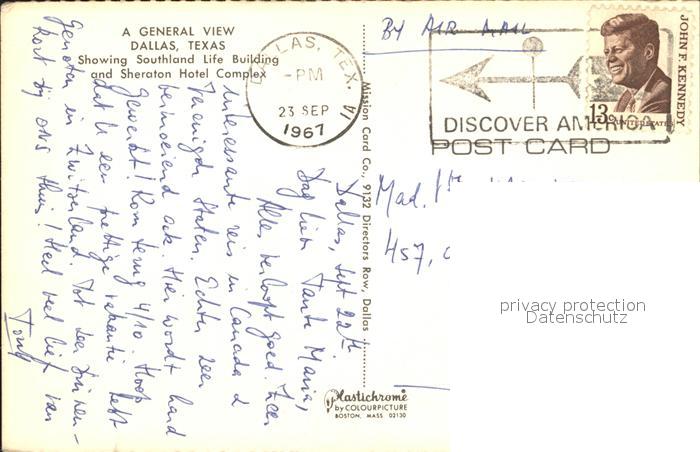 A GENERAL VIEW
DALLAS, TEXAS
Showing Southland Life Building
and Sheraton Hotel Complex
DALLAS, TEX.
-PM
23 SEP
1967
BY AIR MAIL
DISCOVER AMERICA
JOHN F. KENNEDY
13c
UNITED STATES
POST CARD
Mad.
457,
Dallas, Sept 22th
Dag lieve Tante Maria,
Alles verloopt goed. Zeer
interessante reis in Canada &
Verenigde Staten. Echter zeer
vermoeiend ook. Hier wordt hard
gewerkt! Kom terug 4/10. Hoop
dat U een prettige vakantie hebt
genoten in Zwitserland. Tot zeer binnen-
kort bij ons thuis! Heel veel liefs van
Mission Card Co., 9132 Directors Row, Dallas
Plastichrome
by COLOURPICTURE
BOSTON, MASS 02130
privacy protection
Datenschutz